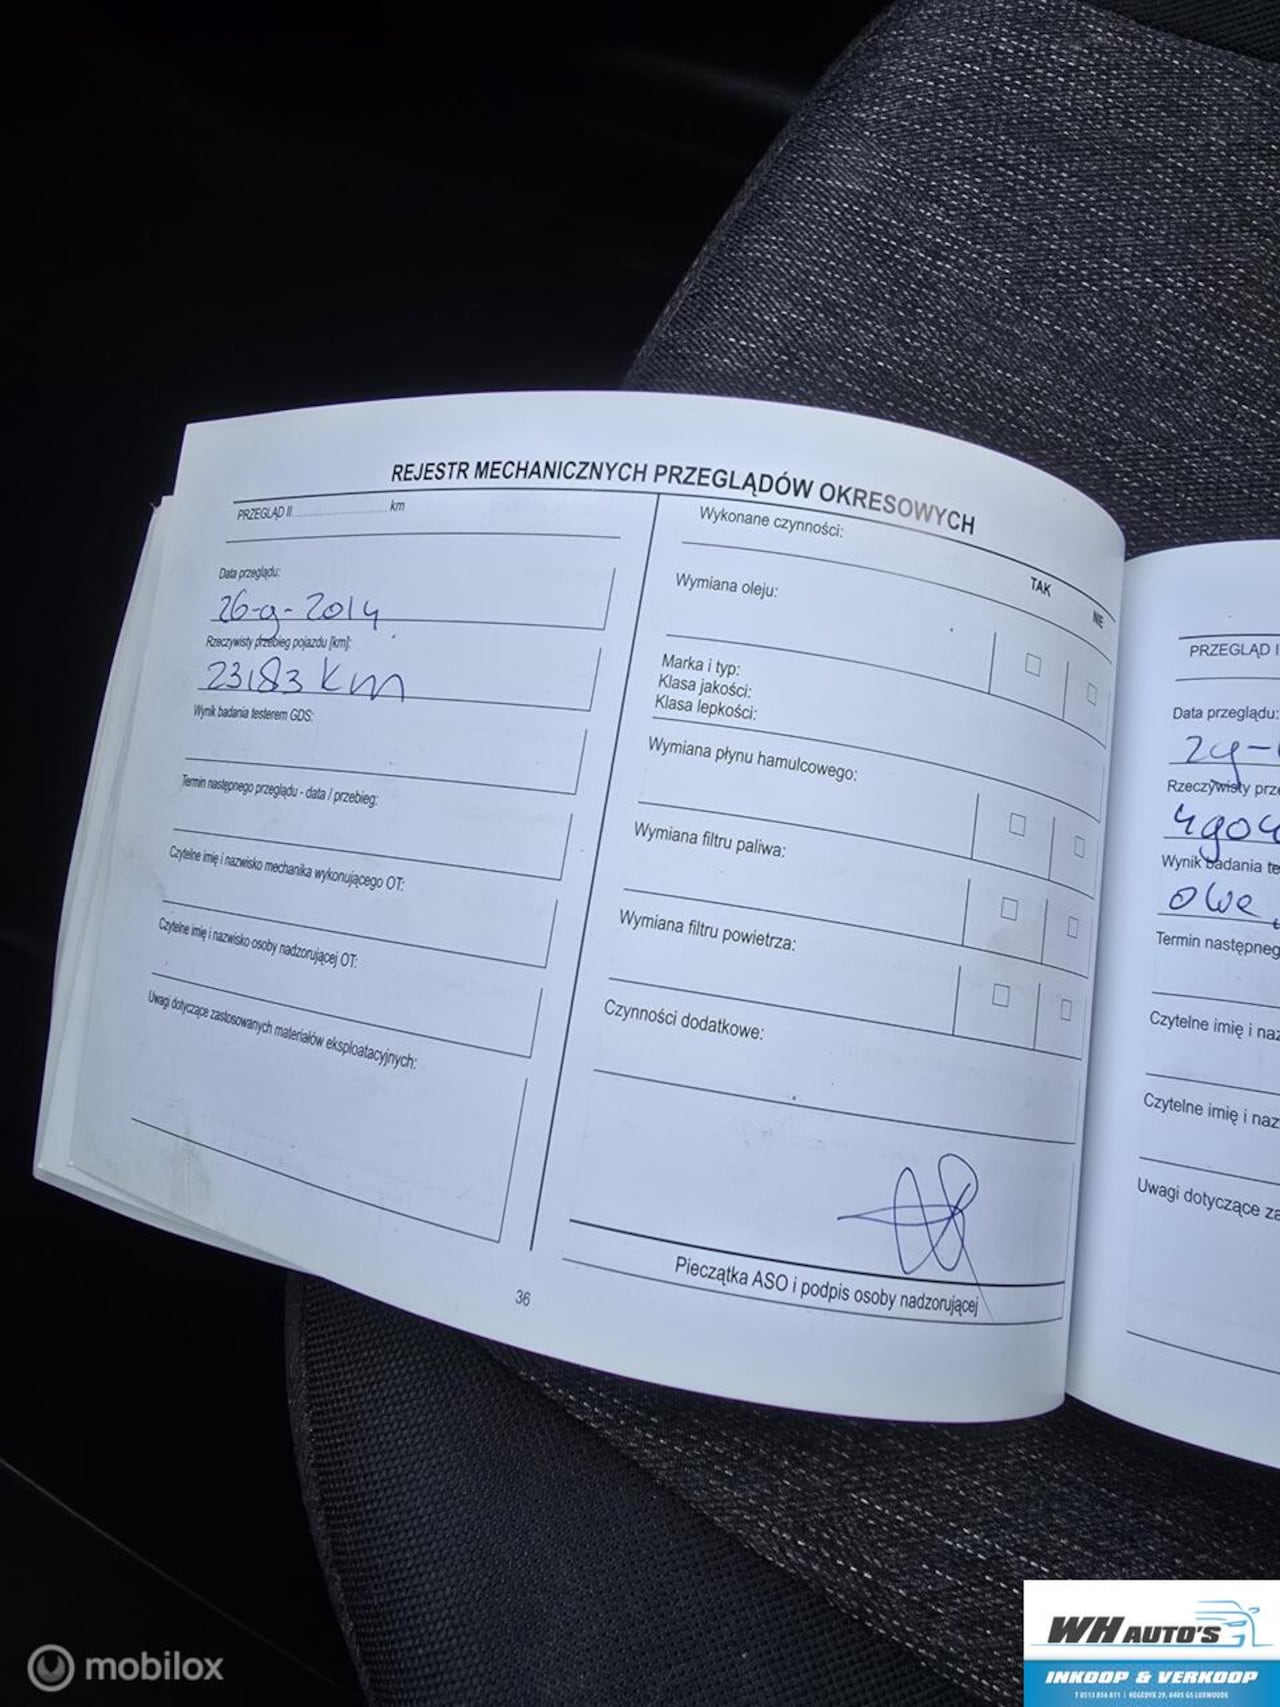 REJESTR MECHANICZNYCH PRZEGLĄDÓW OKRESOWYCH
PRZEGLĄD II .............................. km
Data przeglądu:
26-9-2014
Rzeczywisty przebieg pojazdu [km]:
23183 km
Wynik badania testerem GDS:
Termin następnego przeglądu - data / przebieg:
Czytelne imię i nazwisko mechanika wykonującego OT:
Czytelne imię i nazwisko osoby nadzorującej OT:
Uwagi dotyczące zastosowanych materiałów eksploatacyjnych:
Wykonane czynności:
TAK
NIE
Wymiana oleju:
Marka i typ:
Klasa jakości:
Klasa lepkości:
Wymiana płynu hamulcowego:
Wymiana filtru paliwa:
Wymiana filtru powietrza:
Czynności dodatkowe:
Pieczątka ASO i podpis osoby nadzorującej
36
PRZEGLĄD I
Data przeglądu:
Rzeczywisty prze
Wynik badania te
Termin następneg
Czytelne imię i naz
Czytelne imię i naz
Uwagi dotyczące za
mobilox
WH AUTO'S
INKOOP & VERKOOP
T 0513 856 811 | HEGEDYK 29, 8405 GS LUXWOUDE